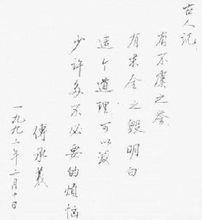 古人说：
有不虞之誉
有求全之毁明白
这个道理可以减
少许多不必要的烦恼
傅承义
一九九二年二月十日